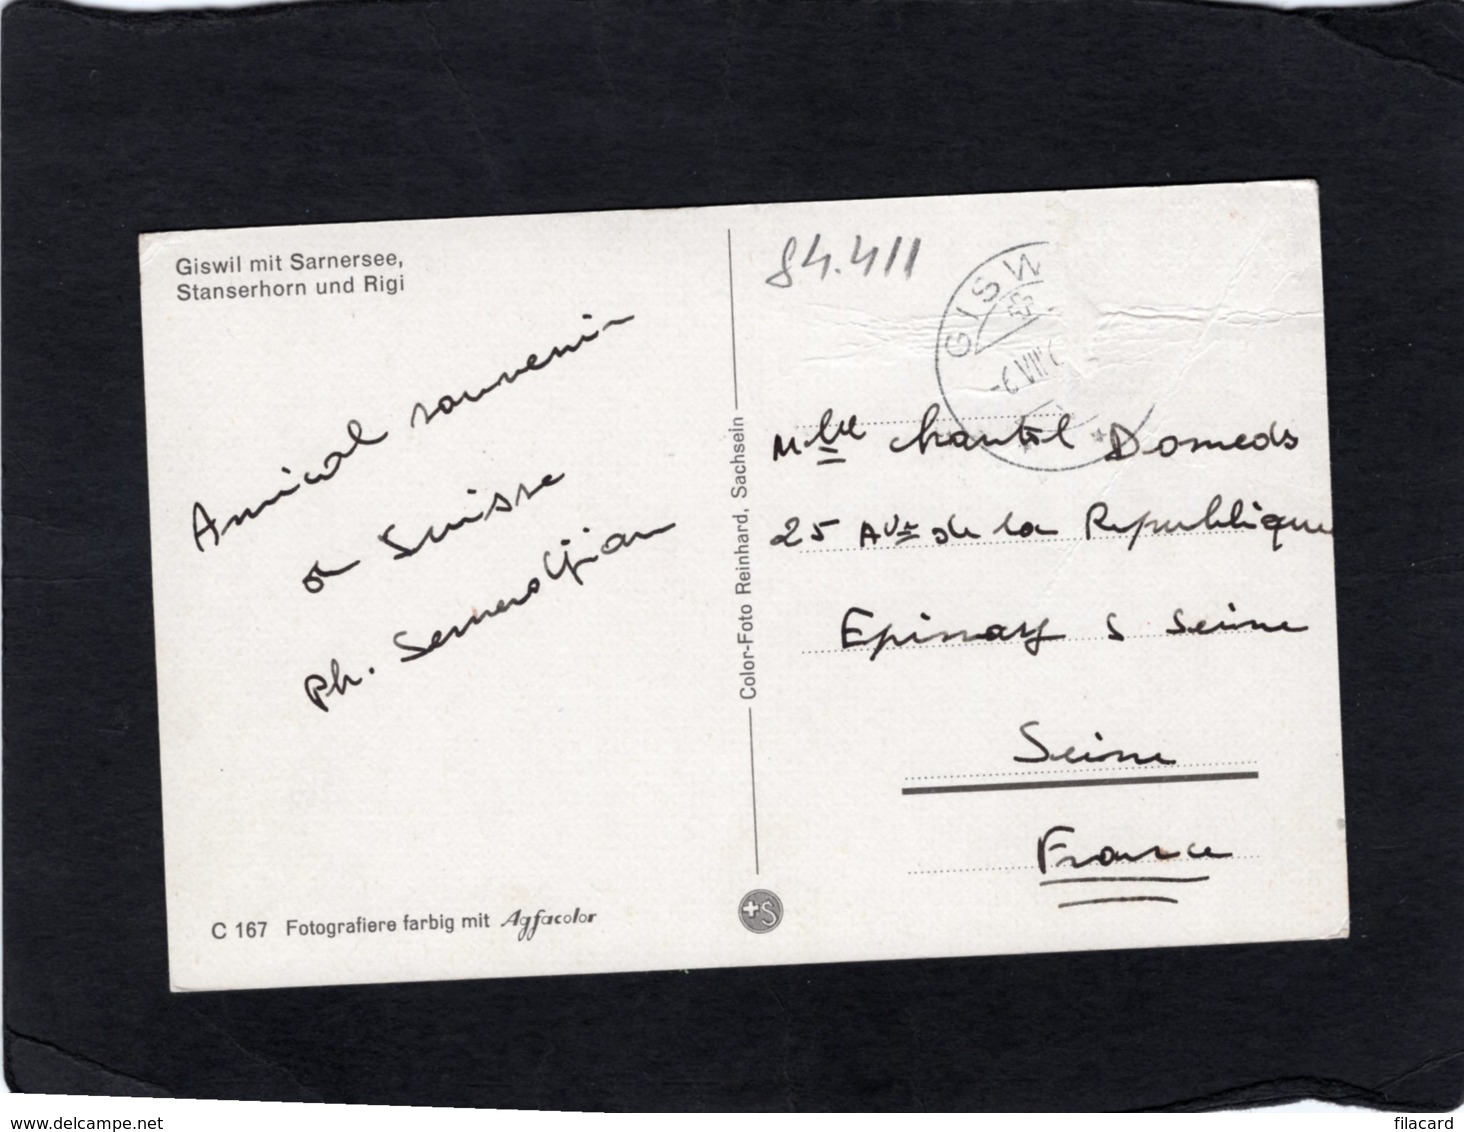 Giswil mit Sarnersee,
Stanserhorn und Rigi
84.411
GISW
-6.VIII.6
Amical souvenir
de Suisse
Ph.
Color-Foto Reinhard, Sachseln
Mlle Chantal Domeds
25 Ave de la République
Epinay s Seine
Seine
France
C 167 Fotografiere farbig mit Agfacolor
+S
www.delcampe.net
filacard